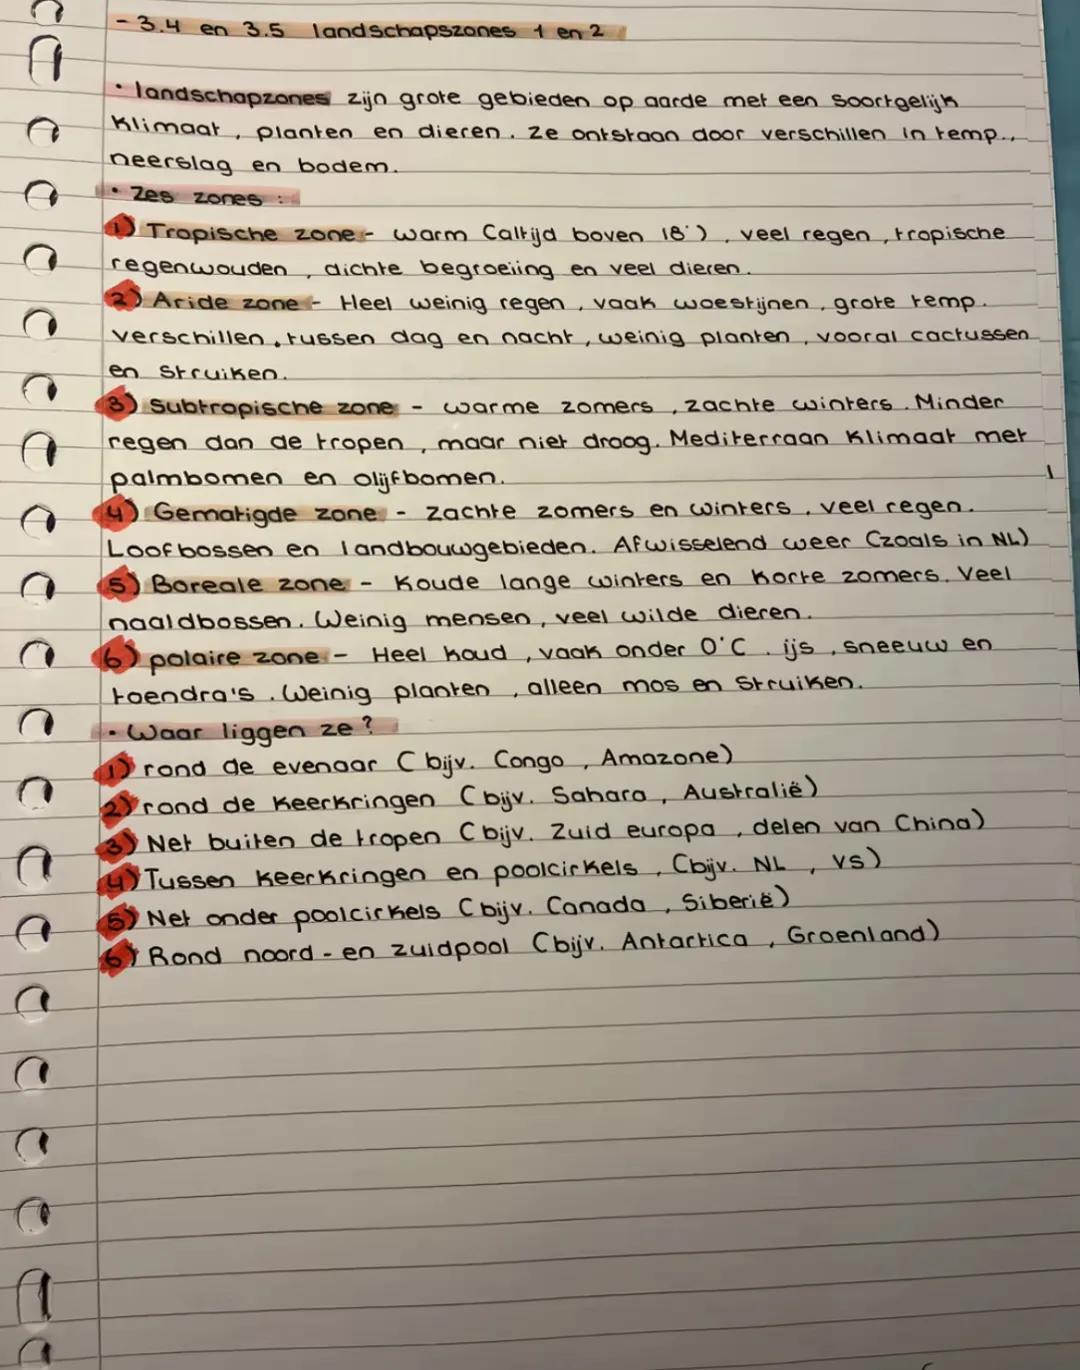 - 3.4 en 3.5 landschapszones 1 en 2
• landschapzones zijn grote gebieden op aarde met een soortgelijk
klimaat, planten en dieren. Ze ontstaan door verschillen in temp.,
neerslag en bodem.
• Zes zones :
1) Tropische zone - warm (altijd boven 18°), veel regen, tropische
regenwouden, dichte begroeiing en veel dieren.
2) Aride zone - Heel weinig regen, vaak woestijnen, grote temp.
verschillen, tussen dag en nacht, weinig planten, vooral cactussen
en struiken.
3) Subtropische zone - warme zomers, zachte winters. Minder
regen dan de tropen, maar niet droog. Mediterraan klimaat met
palmbomen en olijfbomen.
4) Gematigde zone - zachte zomers en winters, veel regen.
Loofbossen en landbouwgebieden. Afwisselend weer (zoals in NL)
5) Boreale zone - Koude lange winters en korte zomers. Veel
naaldbossen. Weinig mensen, veel wilde dieren.
6) polaire zone - Heel koud, vaak onder 0°C. ijs, sneeuw en
toendra's. Weinig planten, alleen mos en struiken.
• Waar liggen ze?
1) rond de evenaar (bijv. Congo, Amazone)
2) rond de keerkringen (bijv. Sahara, Australië)
3) Net buiten de tropen (bijv. Zuid europa, delen van China)
4) Tussen keerkringen en poolcirkels, (bijv. NL, VS)
5) Net onder poolcirkels (bijv. Canada, Siberië)
6) Rond noord - en zuidpool (bijv. Antartica, Groenland)